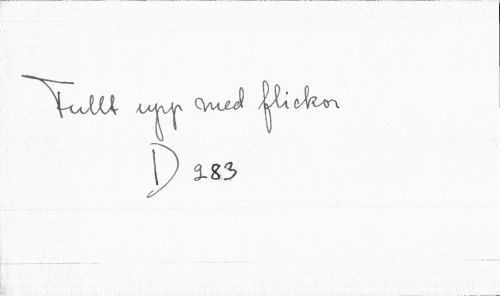 Fullt upp med flickor
D 283